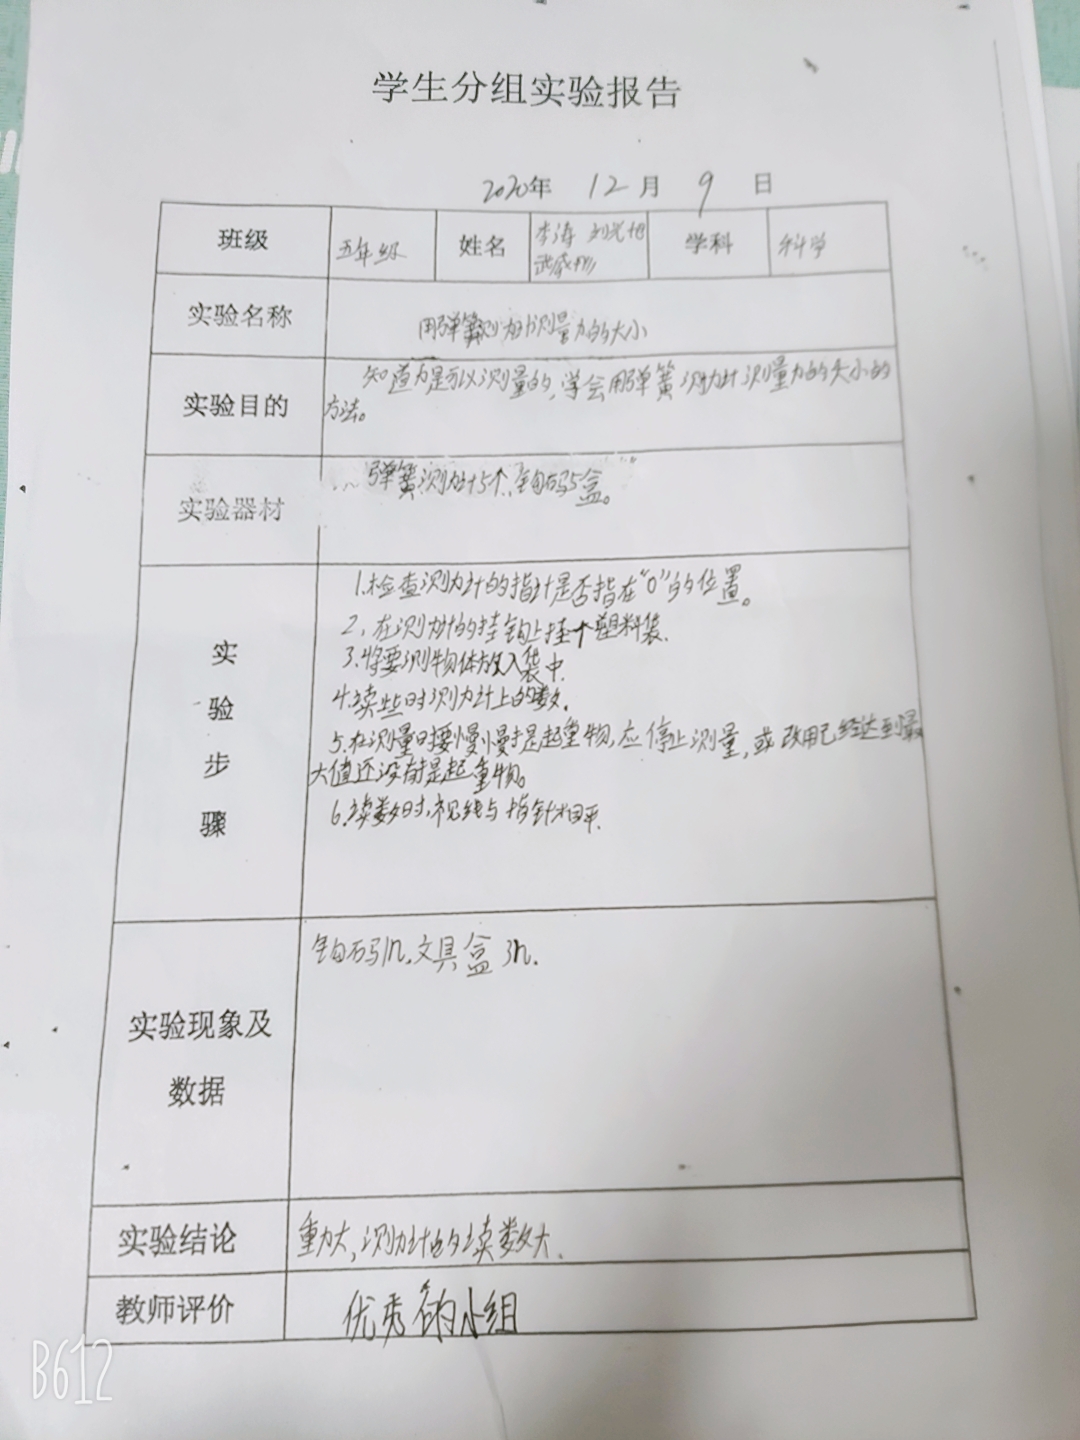 学生分组实验报告
2020年 12月 9 日
班级 五年级 姓名 李涛 刘光旭 学科 科学
武威
实验名称 用弹簧测力计测量力的大小
实验目的 知道力是可以测量的,学会用弹簧测力计测量力的大小的
方法。
实验器材 弹簧测力计5个、钩码5盒。
实验步骤
1.检查测力计的指针是否指在“0”的位置。
2、在测力计的挂钩上挂个塑料袋.
3.将要测物体放入袋中.
4.读些时测力计上的数.
5.在测量时要慢慢提起重物,应停止测量,或改用已经达到最
大值还没有提起重物。
6.读数时,视线与指针相平.
实验现象及
数据
钩码1n.文具盒3n.
实验结论 重力大,测力计的读数大.
教师评价 优秀的小组
B612